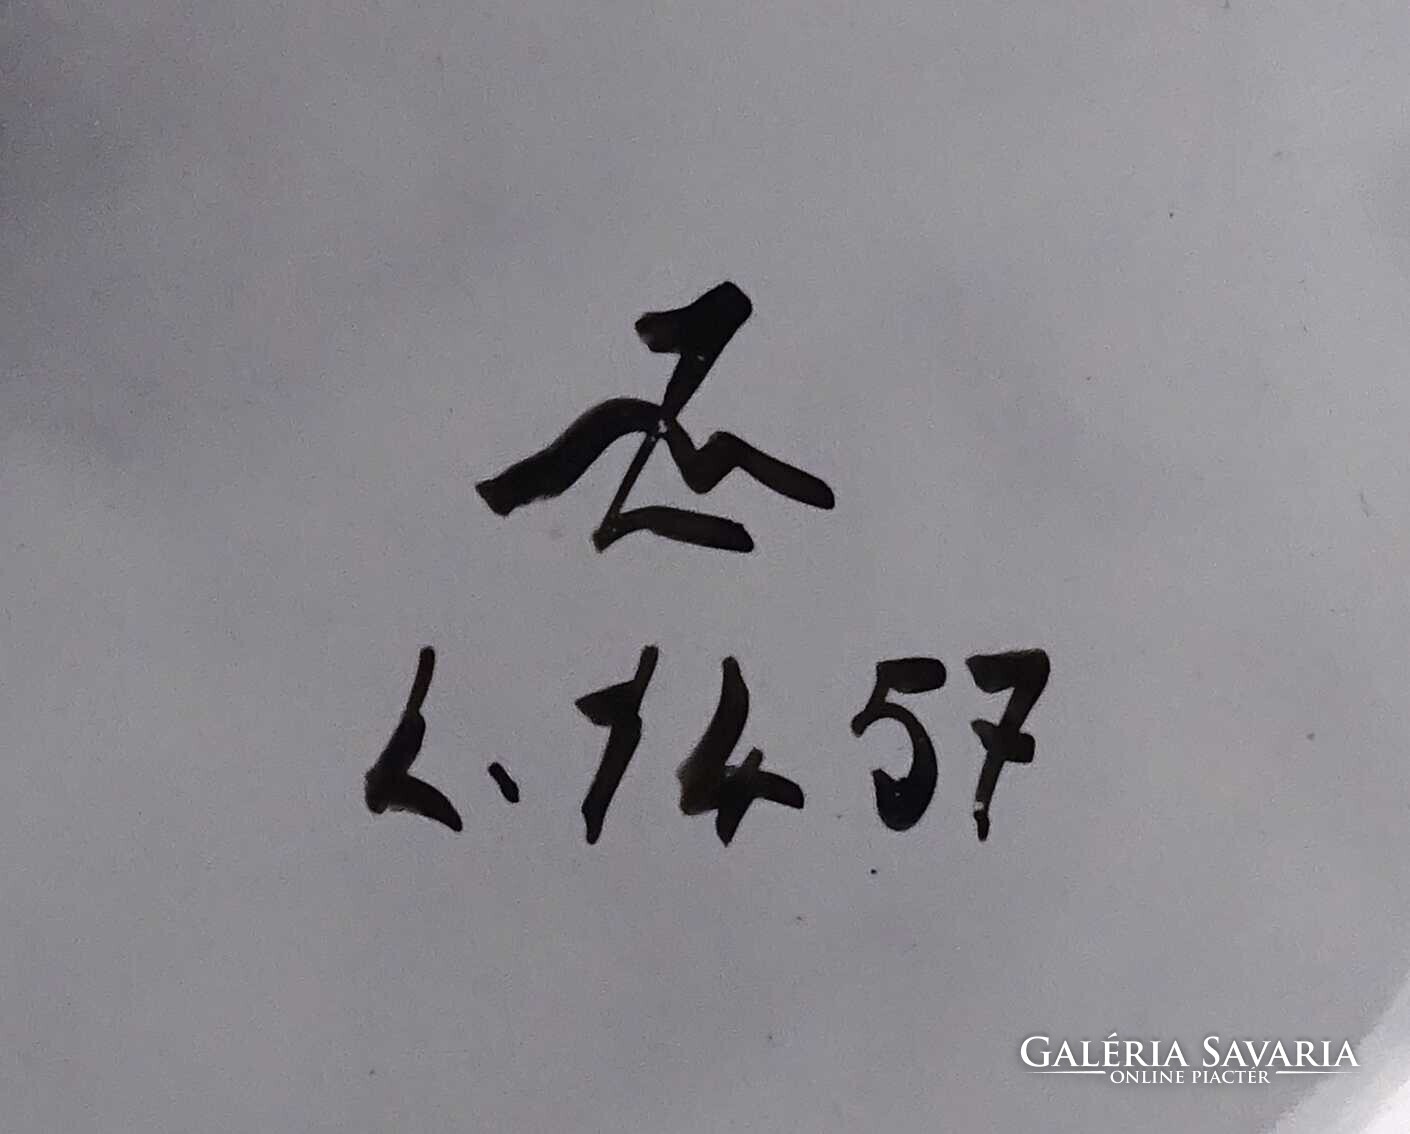 L. 1457
GALÉRIA SAVARIA
ONLINE PIACTÉR